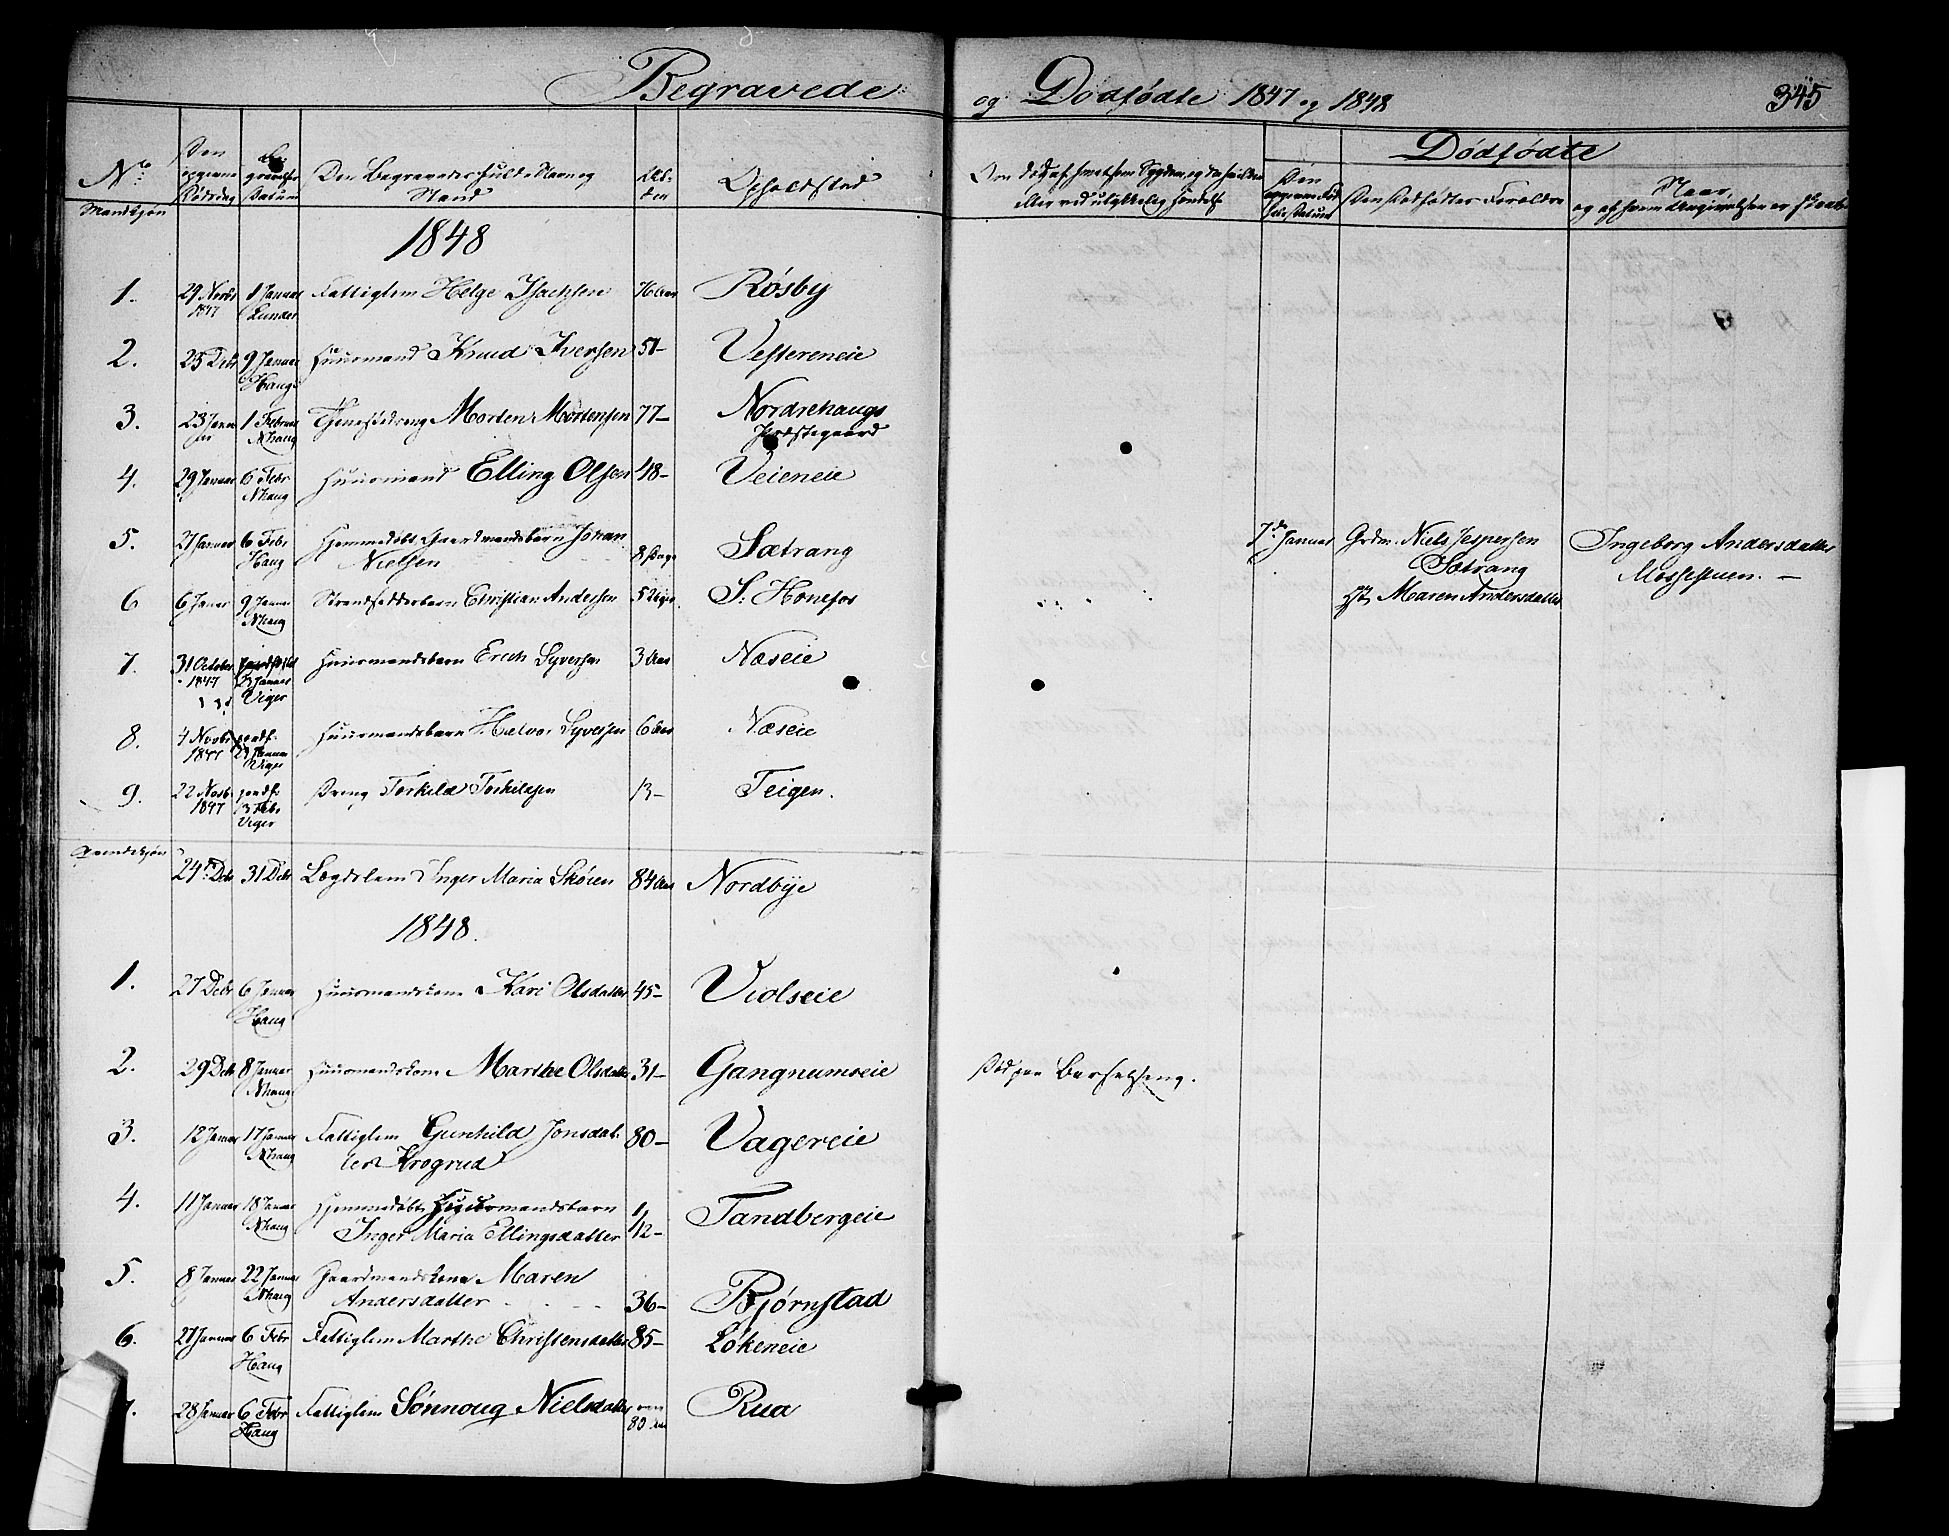 Begravede og Dødfødte 1847 og 1848 345
No.
Den opgivne Dødsdag
Begravelses Datum
Den Begravedes fulde Navn og Stand
Alderen
Opholdsted
Om død af smitsom Sygdom, og da hvilken eller ved ulykkelig Hændelse
Dødfødte
Den opgivne Fødsels Datum
Den Dødfødtes Forældre
Naar og af hvem Angivelsen er skeet
Mandkjøn
1848
1. 29 Novbr 1847 1 Januar Lunder Fattiglem Helge Isachsen 76 Aar Røsby
2. 25 Debr 9 Januar Haug Huusmand Knud Iversen 51– Vestereneie
3. 23 Januar 1 Februar Nhaug Tjenestedreng Morten Mortensen 77– Nordrehaugs Præstegaard
4. 29 Januar 6 Febr Nhaug Huusmand Elling Olsen 48– Veieneie
5. 27 Januar 6 Febr Haug Hjemmedøbt Gaardmandsbarn Johan Nielsen 8 Dage Sætrang
7de Januar Grdm. Niels Jespersen Sætrang
Maren Andersdatter
Ingeborg Andersdatter Mossestuen. –
6 6 Januar 9 Januar Nhaug Strandsidderbarn Christian Andersen 5 Uger S. Honefos
7. 31 October 1847 23 Januar Viger Huusmandsbarn Erich Syversen 3 Aar Næseie
8. 4 Novbr 1847 jordf. 23 Januar Viger Huusmandsbarn Halvor Syversen 6 Aar Næseie
9. 22 Novb. 1847 jordf. 13 Febr Viger Dreng Torkild Torkildsen 13– Teigen.
Qvindekjøn
24de Debr 31 Debr Lægdslem Inger Maria Skøien 84 Aar Nordbye
1848.
1. 27 Debr 6 Januar Haug Huusmandskone Kari Olsdatter 45– Violseie
2. 29 Debr 8 Januar Nhaug Huusmandskone Marthe Olsdatter 31– Gangnumseie
Død paa Barselseng.
3. 12 Januar 17 Januar Nhaug Fattiglem Gunhild Jonsdatter Krogrud 80– Vagereie
4. 11 Januar 18 Januar Nhaug Hjemmedøbt Huusmandsbarn
Inger Maria Ellingsdatter 1/12– Tandbergeie
5. 8 Januar 22 Januar Nhaug Gaardmandskone Maren
Andersdatter 36– Bjørnstad
6. 27 Januar 6 Febr Haug Fattiglem Marthe Christensdatter 85– Løkeneie
7. 28 Januar 6 Febr Haug Fattiglem Sønnoug Nielsdatter over 80 Aar Rua